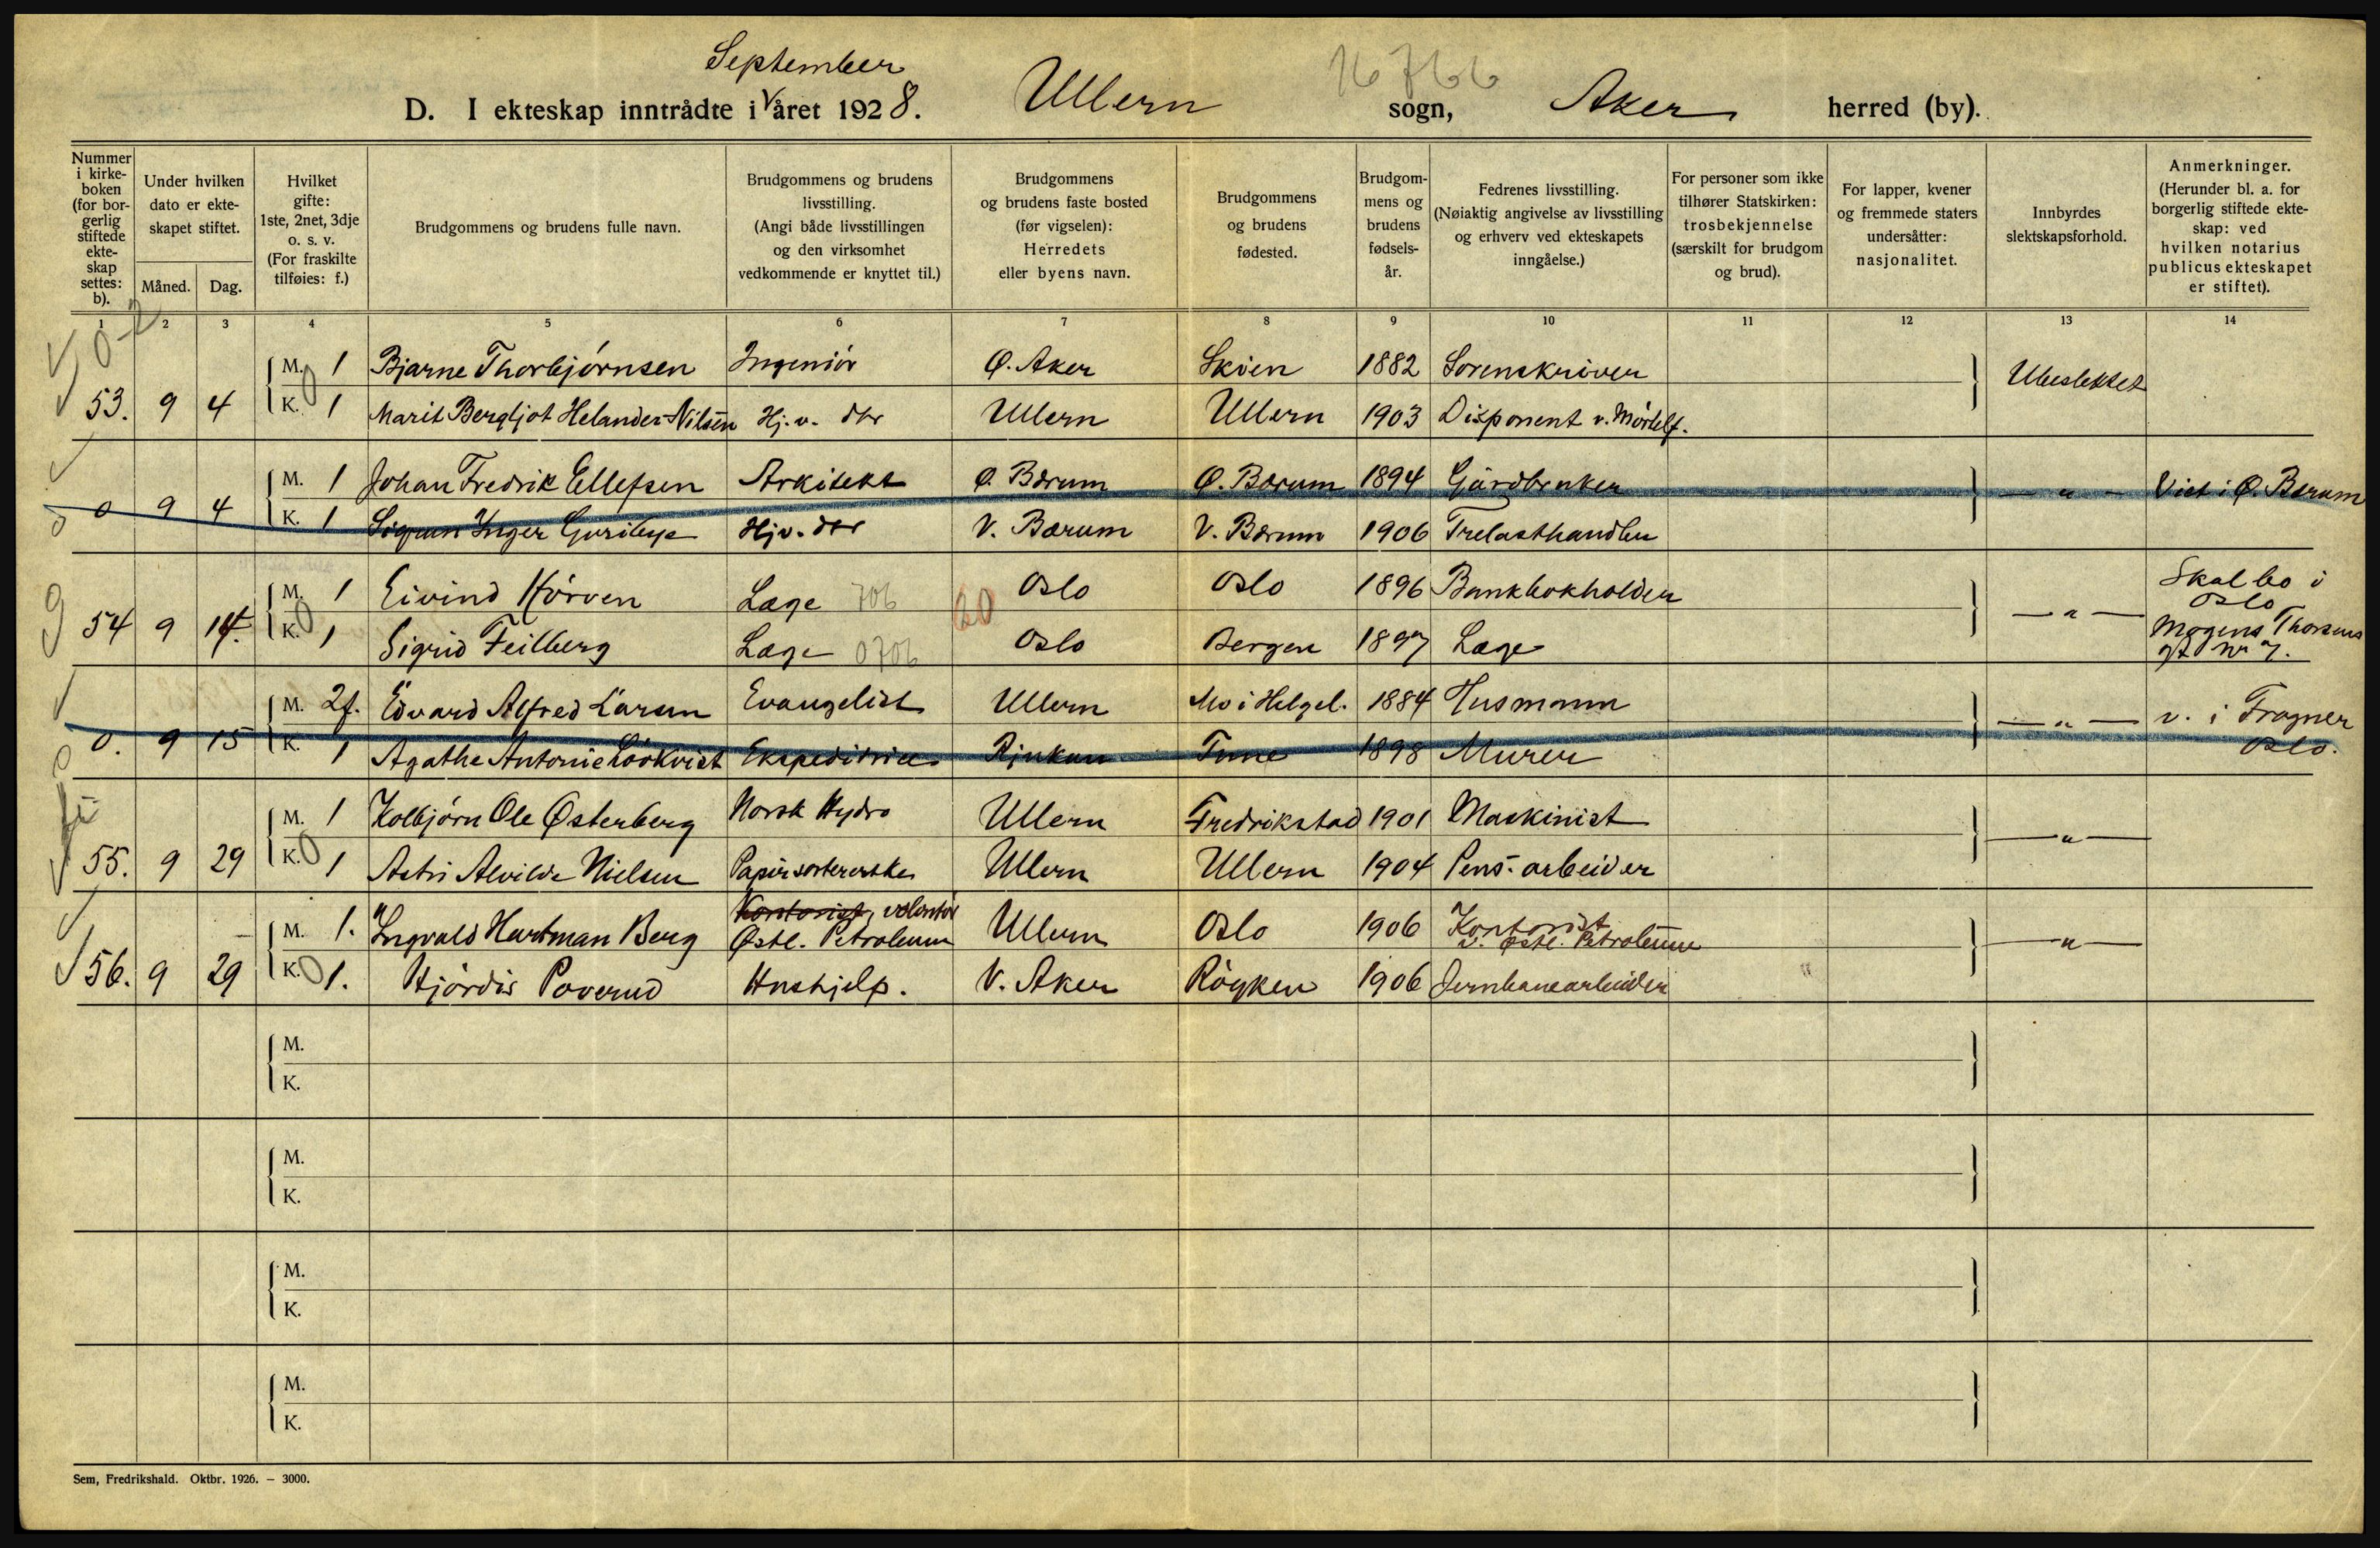 September
16766
D. I ekteskap inntrådte i året 1928. Ullern sogn, Aker herred (by).
Nummer i kirkeboken (for borgerlig stiftede ekteskap settes: b).
Under hvilken dato er ekteskapet stiftet.
Måned. Dag.
Hvilket gifte: 1ste, 2net, 3dje o. s. v. (For fraskilte tilføies: f.)
Brudgommens og brudens fulle navn.
Brudgommens og brudens livsstilling. (Angi både livsstillingen og den virksomhet vedkommende er knyttet til.)
Brudgommens og brudens faste bosted (før vigselen): Herredets eller byens navn.
Brudgommens og brudens fødested.
Brudgommens og brudens fødselsår.
Fedrenes livsstilling. (Nøiaktig angivelse av livsstilling og erhverv ved ekteskapets inngåelse.)
For personer som ikke tilhører Statskirken: trosbekjennelse (særskilt for brudgom og brud).
For lapper, kvener og fremmede staters undersåtter: nasjonalitet.
Innbyrdes slektskapsforhold.
Anmerkninger. (Herunder bl. a. for borgerlig stiftede ekteskap: ved hvilken notarius publicus ekteskapet er stiftet).
1 2 3 4 5 6 7 8 9 10 11 12 13 14
M. 1 Bjarne Thorbjørnsen Ingeniør Ø. Aker Skien 1882 Sorenskriver Ubeslektet
53. 9 4 K. 1 Marit Bergljot Helander-Nilsen Hj. v. dtr Ullern Ullern 1903 Disponent v. Mørtelf.
M. 1 Johan Fredrik Ellefsen Arkitekt Ø. Bærum Ø. Bærum 1894 Gårdbruker — " — Viet i Ø. Bærum
0 9 4 K. 1 Sigrun Inger Hj v. dtr V. Bærum V. Bærum 1906 Trelasthandler
M. 1 Eivind Hørven Læge 706 Oslo Oslo 1896 Bankbokholder — " — Skal bo i Oslo
54 9 14. K. 1 Sigrid Feilberg Læge 0706 Oslo Bergen 1897 Læge Mogens Thorsens gt nr 7.
M. 2f. Edvard Alfred Larsen Evangelist Ullern Mo i Helgel. 1884 Husmann — " — v. i Frogner
0. 9 15 K. 1 Agathe Antonie Løvkvist Ekspeditrice Rjukan Tune 1898 Murer Oslo.
M. 1 Kolbjørn Ole Østerberg Norsk Hydro Ullern Fredrikstad 1901 Maskinist — " —
55. 9 29 K. 1 Astri Alvilde Nielsen Papirsortererske Ullern Ullern 1904 Pens. arbeider
M. 1. Ingvald Hartman Berg Kontorist, volontør Østl. Petroleum Ullern Oslo 1906 Kontorist v. Østl. Petroleum — " —
56. 9 29 K. 1. Hjørdis Poverud Hushjelp. V. Aker Røyken 1906 Jernbanearbeider
M.
K.
M.
K.
M.
K.
M.
K.
Sem, Fredrikshald. Oktbr. 1926. — 3000.